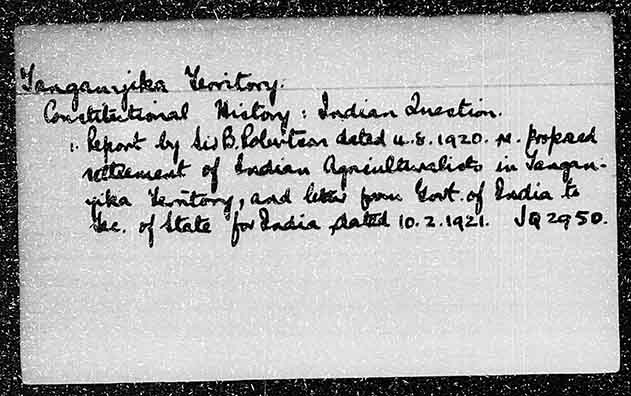 Tanganyika Territory.
Constitutional History: Indian Question.
1. Report by Sir B. Robertson dated 4.8.1920. re. proposed
settlement of Indian Agriculturalists in Tangan-
yika Territory, and letter from Govt. of India to
Sec. of State for India dated 10.2.1921. JQ2950.